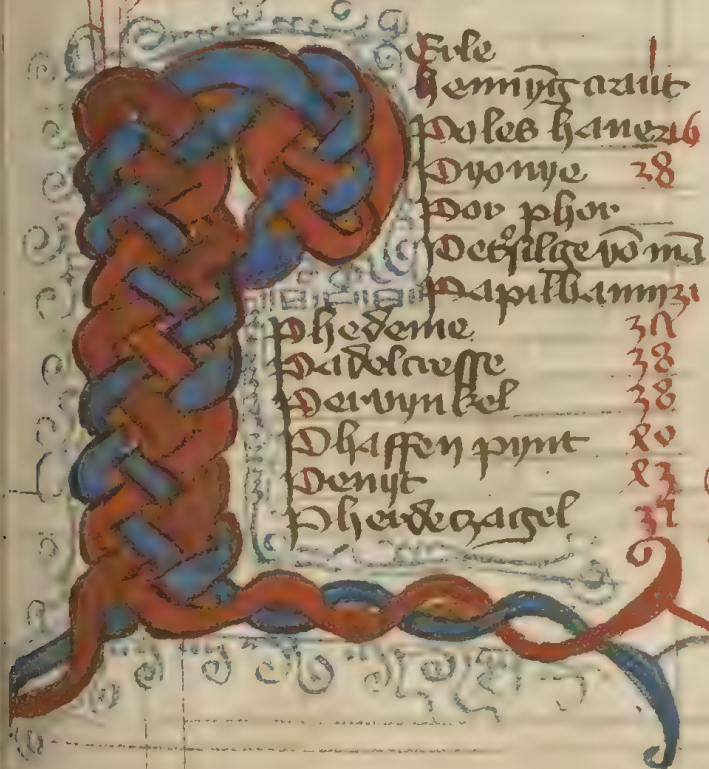 Erle 1
henni̅g craut
Poles hane 216
Pyonye 28
Por phor
Petirsilge vo̅ ma̅
Papilbaum 31
Phedeme
Padelcresse 38
Pervynkel 38
Phaffen pynt
Penyt
Pherdeczagel